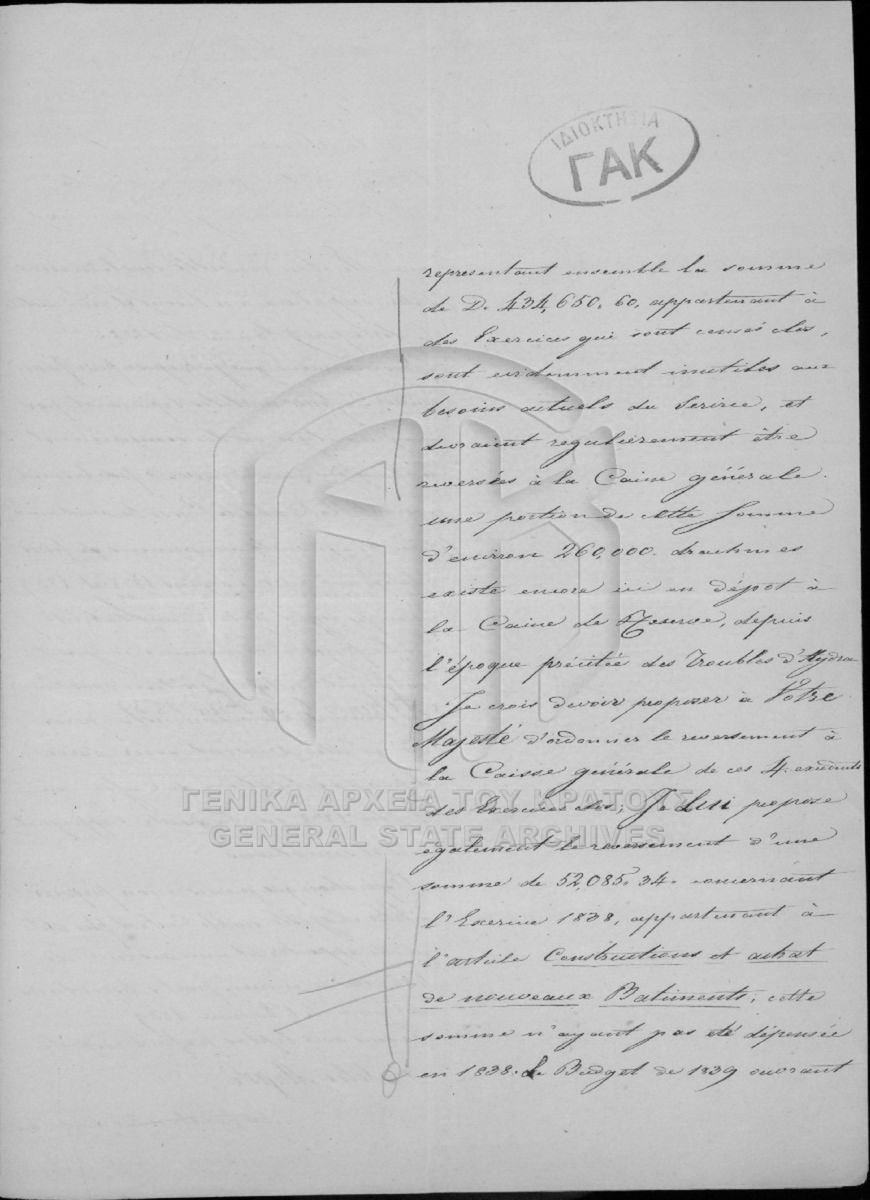 ΙΔΙΟΚΤΗΣΙΑ
ΓΑΚ
représentant ensemble la somme
de D. 434,650.60, appartenant à
des Exercices qui sont censés clos,
sont evidemment inutiles aux
besoins actuels du Service, et
devraient regulièrement être
reversées à la Caisse générale.
une portion de cette somme
d'environ 260,000. drachmes
existe encore ici en dépot à
la Caisse de Reserve, depuis
l'époque précitée des troubles d'Hydra
Je crois devoir proposer à Vôtre
Majesté d'ordonner le reversement à
la Caisse générale de ces 4. excédents
des Exercices clos; Je Lui propose
également le reversement d'une
somme de 52,085.34. concernant
l'Exercice 1838, appartenant à
l'article Constructions et achat
de nouveaux Batiments, cette
somme n'ayant pas été dépensée
en 1838. Le Budget de 1839 ouvrant
ΓΕΝΙΚΑ ΑΡΧΕΙΑ ΤΟΥ ΚΡΑΤΟΥΣ
GENERAL STATE ARCHIVES